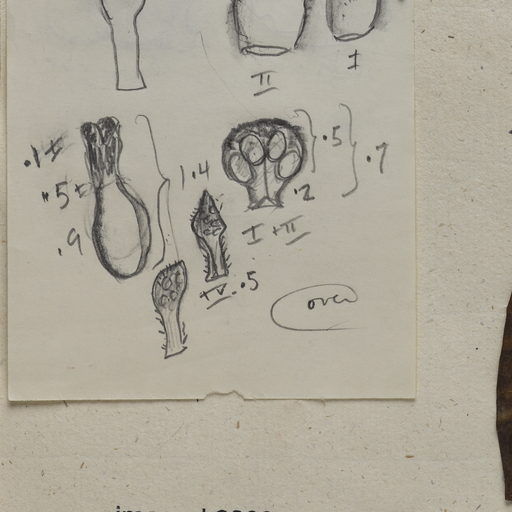 II
I
.1±
.5±
.9
1.4
.5
.7
.2
I + II
+V. .5
over